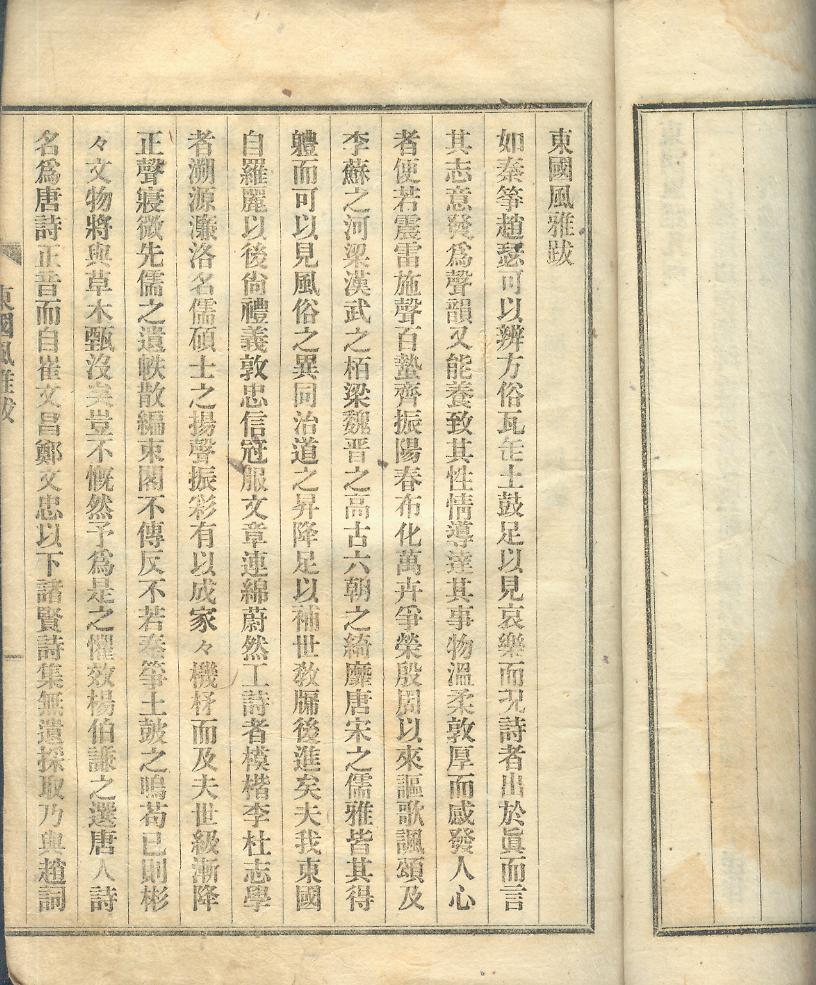 東國風雅跋
如秦箏趙瑟可以辨方俗瓦缶土鼓足以見哀樂而况詩者出於眞而言
其志意發爲聲韻又能養致其性情導達其事物溫柔敦厚而感發人心
者便若震雷施聲百蟄齊振陽春布化萬卉爭榮殷周以來謳歌諷頌及
李蘇之河梁漢武之栢梁魏晋之高古六朝之綺靡唐宋之儒雅皆其得
軆而可以見風俗之異同治道之昇降足以補世敎牖後進矣夫我東國
自羅麗以後尙禮義敦忠信冠服文章連綿蔚然工詩者模楷李杜志學
者溯源濂洛名儒碩士之揚聲振彩有以成家々機杼而及夫世級漸降
正聲寢微先儒之遺帙散編束閣不傳反不若秦箏土鼓之鳴苟已則彬
々文物將與草木甄沒矣豈不慨然予爲是之懼效楊伯謙之選唐人詩
名爲唐詩正音而自崔文昌鄭文忠以下諸賢詩集無遺採取乃與趙詞
東國風雅跋
一